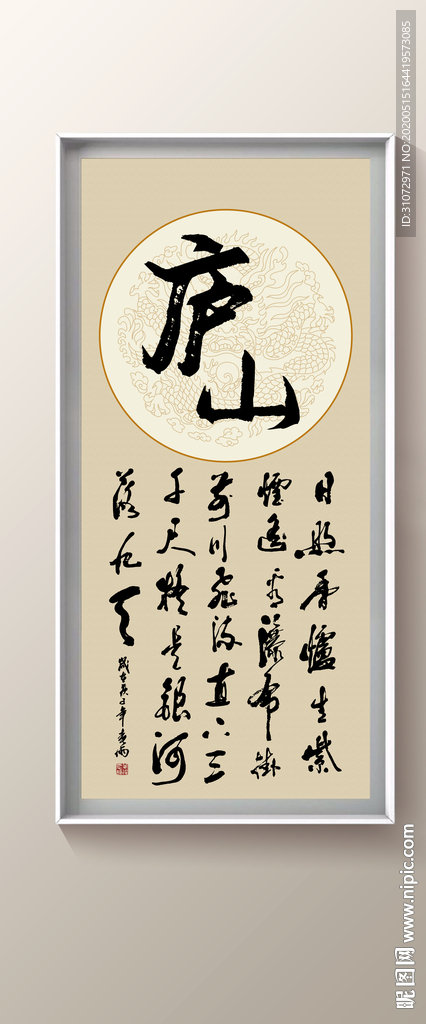 庐山
日照香爐生紫
煙遙看瀑布掛
前川飛流直下三
千尺疑是銀河
落九天
歲在庚子年春雨
ID:31072971 NO:20200515164419573085
昵图网 www.nipic.com